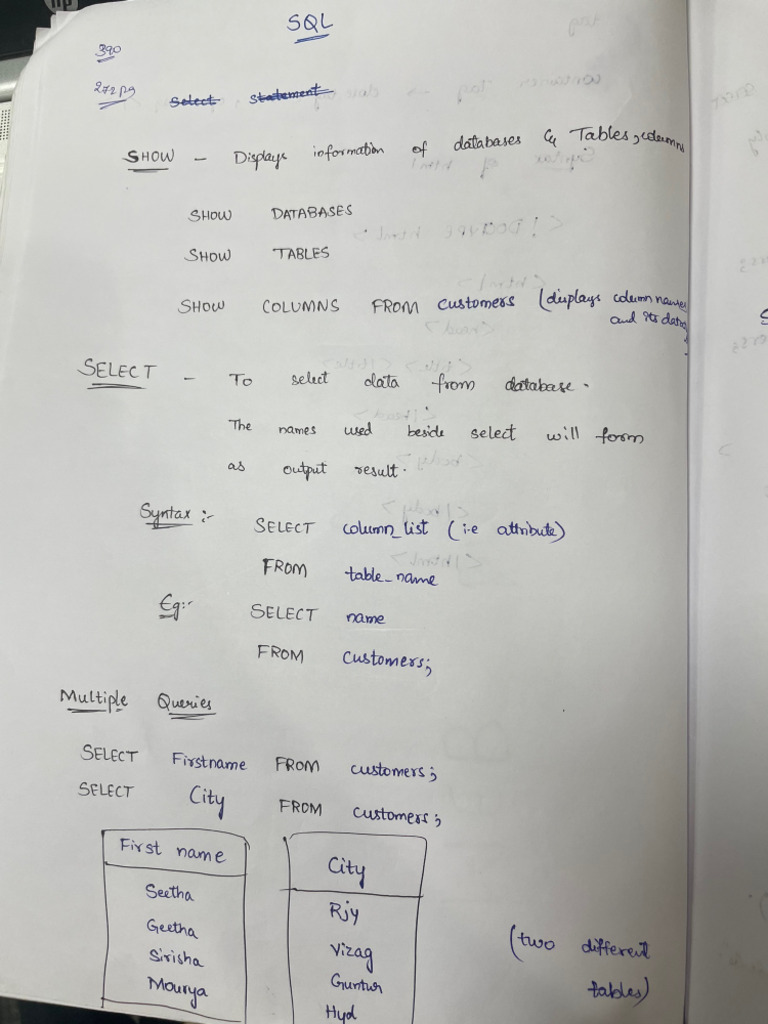 SQL
390
272 pg Select Statement
SHOW - Displays information of databases & Tables, columns
SHOW DATABASES
SHOW TABLES
SHOW COLUMNS FROM customers (displays column names
and its data
SELECT - To select data from database.
The names used beside select will form
as output result.
Syntax :- SELECT column_list (i.e attribute)
FROM table_name
Eg:- SELECT name
FROM customers;
Multiple Queries
SELECT Firstname FROM customers;
SELECT City FROM customers;
First name
Seetha
Geetha
Sirisha
Mourya
City
Rjy
Vizag
Guntur
Hyd
(two different
tables)